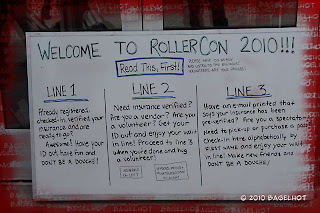 WELCOME TO ROLLERCON 2010!!!
Read This, First!
LINE 1
Already registered,
checked-in, verified your
insurance and are
ready to go?
Awesome! Have your
ID out, have fun and
Don't BE A DOUCHE!
LINE 2
Need insurance verified?
Are you a vendor? Are you
a volunteer? Get your
ID out and enjoy your wait
in line! Proceed to line 3
when you're done and hug
a volunteer!
LINE 3
Have an email printed that
says your insurance has been
pre-verified? Are you a spectator?
Need to pick-up or purchase a pass?
Check-in here alphabetically, by
FIRST NAME and enjoy your wait
in line! Make new friends and
DON'T BE A DOUCHE!
© 2010 BAGELHOT